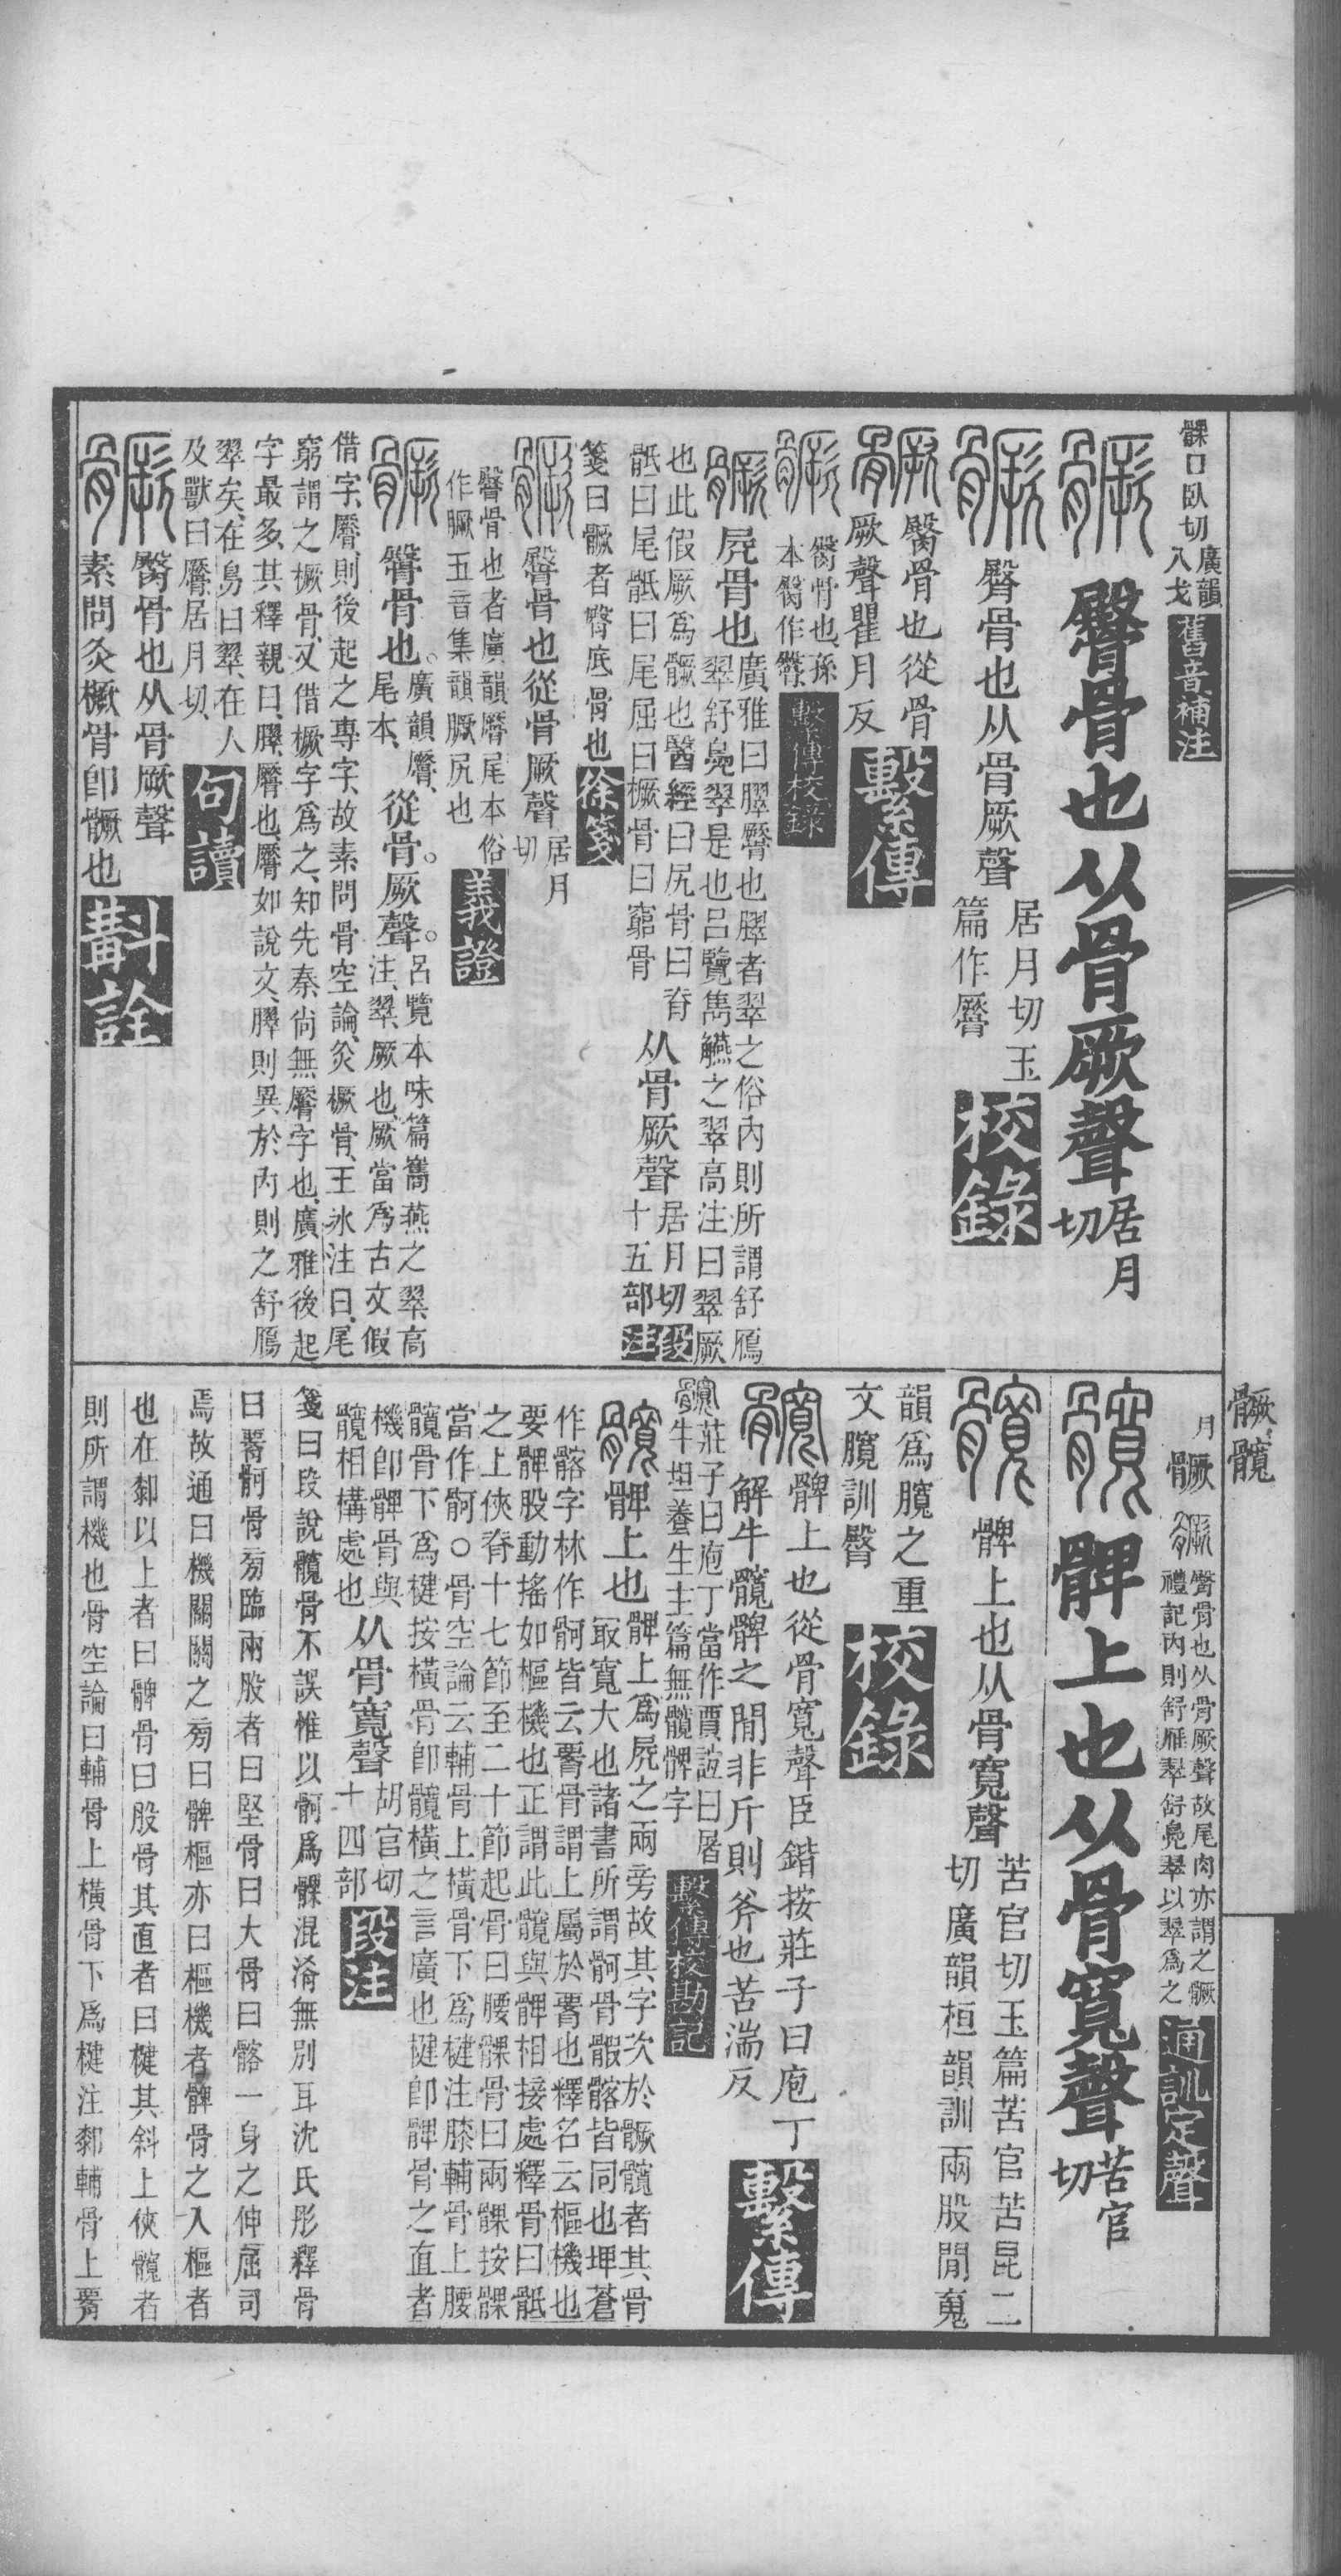 髁口臥切廣韻
入戈舊音補注
臀骨也从骨厥聲居月
切
臀骨也从骨厥聲居月切玉
篇作𦠒校錄
臋骨也從骨
厥聲瞿月反繫傳
臋骨也孫
本臋作臀繫傳校錄
屍骨也廣雅曰臎𦠒也臎者翠之俗內則所謂舒鴈
翠舒鳧翠是也呂覽雋觾之翠高注曰翠厥
也此假厥爲髖也醫經曰尻骨曰脊
骶曰尾骶曰尾屈曰橛骨曰窮骨从骨厥聲居月切
十五部段注
箋曰𩪗者臀底骨也徐箋
臀骨也從骨厥聲居月
切
臀骨也者廣韻𦠒尾本俗
作臁五音集韻臁尻也義證
臀骨也廣韻𦠒、
尾本、從骨。厥聲。呂覽本味篇嶲燕之翠、高
注、翠、厥也、厥當爲古文假
借字、𦠒則後起之專字、故素問骨空論、灸橛骨、王冰注曰、尾
窮謂之橛骨、又借橛字爲之、知先秦尚無𦠒字也、廣雅後起
字最多、其釋親曰、臎、𦠒也、𦠒如說文、臎則異於內則之舒鴈
翠矣、在鳥曰翠、在人
及獸曰𦠒、居月切、句讀
臋骨也从骨厥聲
素問灸橛骨卽𩪗也斠詮
𩪗髖
月𩪗臀骨也从骨厥聲故尾肉亦謂之𩪗
禮記內則舒雁翠舒鳧翠以翠爲之通訓定聲
髀上也从骨寬聲苦官
切
髀上也从骨寬聲苦官切玉篇苦官苦昆二
切廣韻桓韻訓兩股閒䰟
韻爲臗之重
文臗訓臀校錄
髀上也從骨寬聲臣鍇按莊子曰庖丁
解牛髖髀之閒非斤則斧也苦湍反繫傳
髖莊子曰庖丁當作賈誼曰屠
牛坦養生主篇無髖髀字繫傳校勘記
髀上也髀上爲屍之兩旁故其字次於𩪗髖者其骨
㝡寬大也諸書所謂䯊骨髂髂皆同也埤蒼
作髂字林作䯊皆云䯊骨謂上屬於䯊也釋名云樞機也
要髀股動搖如樞機也正謂此髖與髀相接處釋骨曰骶
之上俠脊十七節至二十節起骨曰腰髁骨曰兩髁按髁
當作䯊○骨空論云輔骨上橫骨下爲楗注膝輔骨上腰
髖骨下爲楗按橫骨卽髖橫之言廣也楗卽髀骨之直者
機卽髀骨與
髖相構處也从骨寬聲胡官切
十四部段注
箋曰段說髖骨不誤惟以䯊爲髁混淆無別耳沈氏彤釋骨
曰䯊䯊骨旁臨兩股者曰堅骨曰大骨曰髂一身之伸屈司
焉故通曰機關關之旁曰髀樞亦曰樞機者髀骨之入樞者
也在䣛以上者曰髀骨曰股骨其直者曰楗其斜上俠髖者
則所謂機也骨空論曰輔骨上橫骨下爲楗注䣛輔骨上䯊